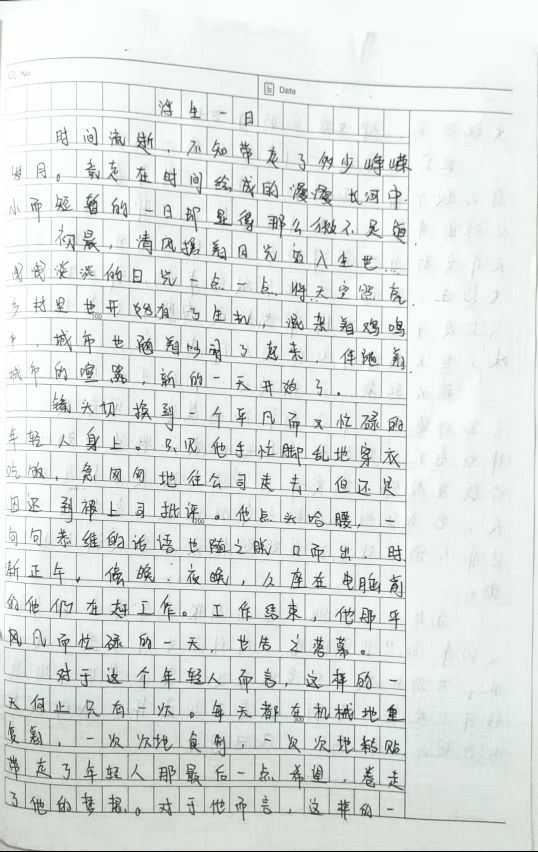 No.
Date
浮生一日
时间流逝，不知带走了多少峥嵘
岁月。竟走在时间绘成的漫漫长河中
小而短暂的一日却显得那么微不足道
初晨，清风携着日光入尘世
浅浅淡淡的日光一点一点将天空照亮
乡村里也开始有了生机，混杂着鸡鸣
，城市也随着吵闹了起来，伴随着
城市的喧嚣，新的一天开始了。
100
镜头切换到一个平凡而又忙碌的
年轻人身上。只见他手忙脚乱地穿衣
吃饭，急匆匆地往公司走去，但还是
因迟到被上司批评。他点头哈腰，一
200
句句恭维的话语也随之脱口而出。时
渐正午，傍晚，夜晚，久座在电脑前
的他们在赶工作。工作结束，他那平
凡而忙碌的一天，也告之落幕。
对于这个年轻人而言，这样的一
天何止只有一次。每天都在机械地重
300
复着，一次次地复制，一次次地粘贴
带走了年轻人那最后一点希望，卷走
了他的梦想。对于他而言，这样的一